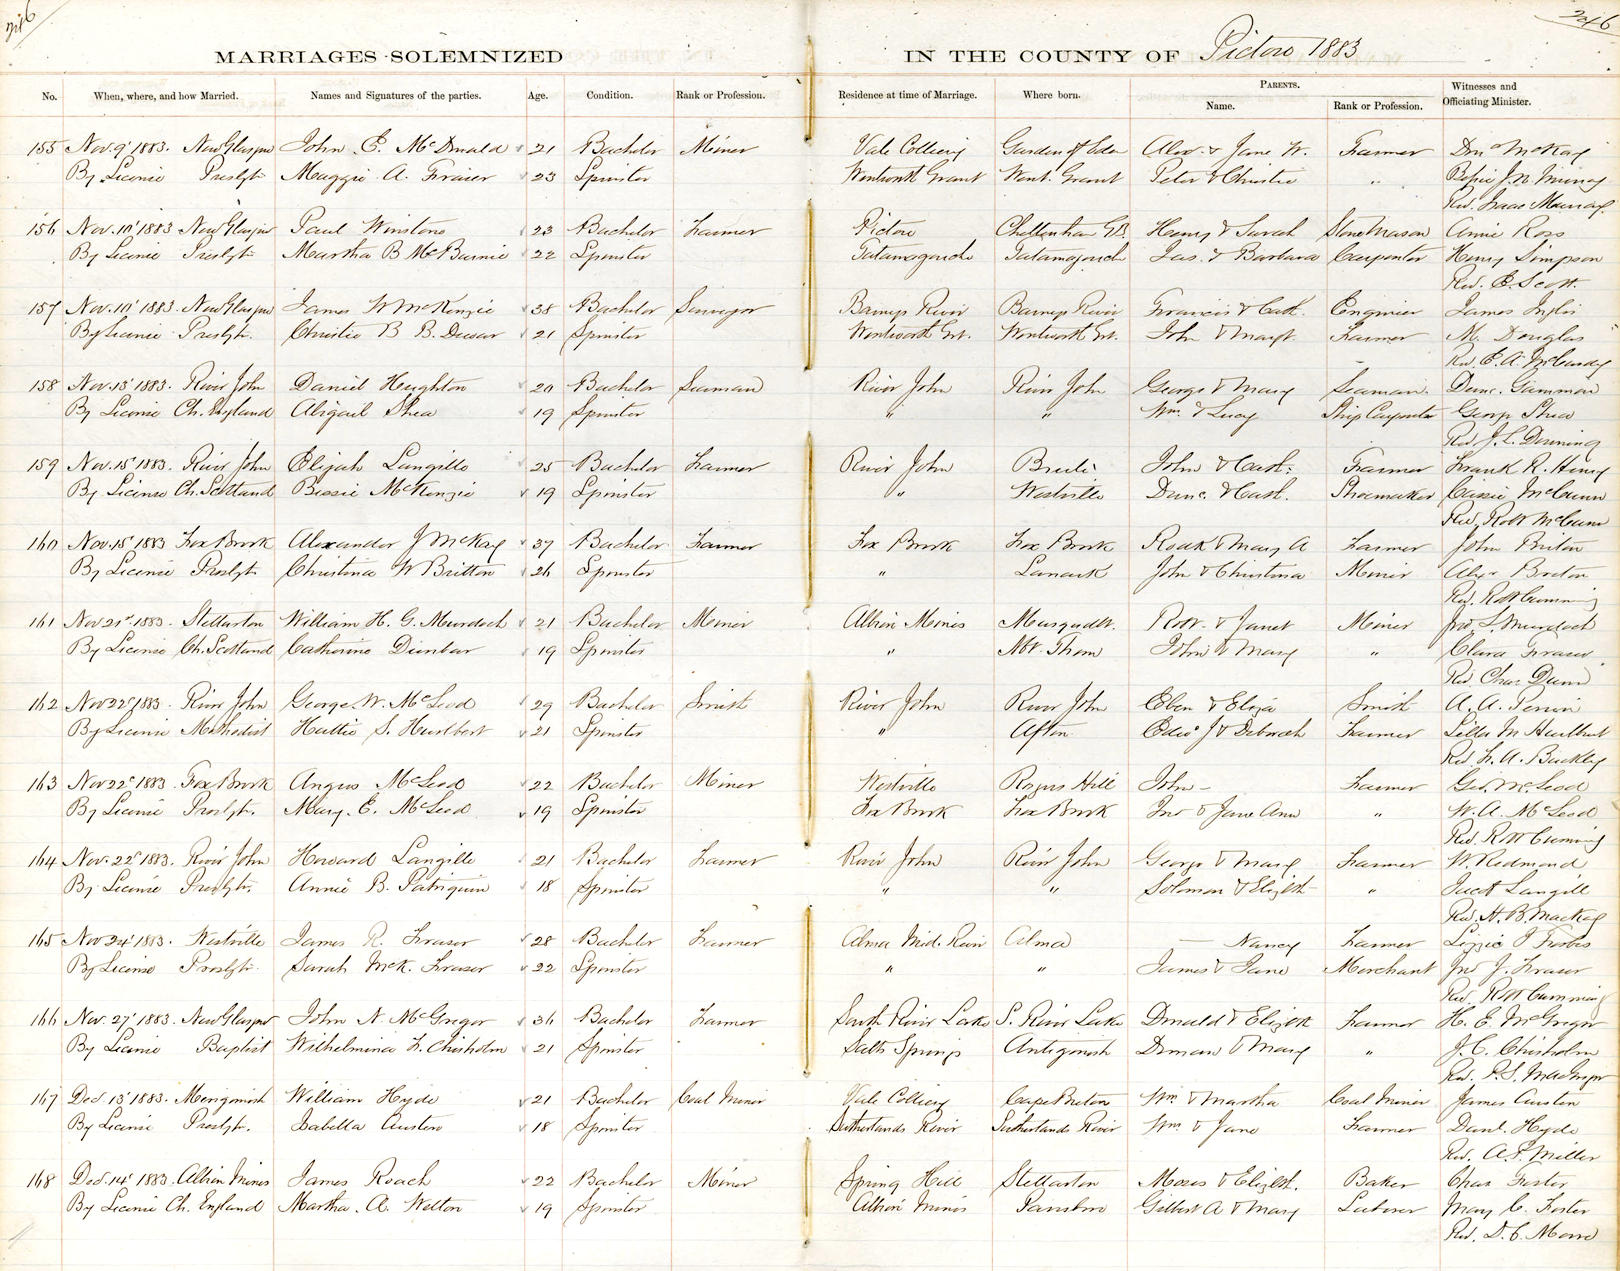 246 246
MARRIAGES SOLEMNIZED IN THE COUNTY OF Pictou 1883
No. When, where, and how Married. Names and Signatures of the parties. Age. Condition. Rank or Profession. Residence at time of Marriage. Where born. PARENTS. Name. Rank or Profession. Witnesses and Officiating Minister.
155 Nov. 9' 1883. New Glasgow John E. McDonald 21 Bachelor Miner Vale Colliery Garden of Eden Alex. & Jane W. Farmer Dnc McKay
By License Presbytn Maggie A. Fraser 23 Spinster Wentworth Grant Went. Grant Peter & Christie " Bessie J. N. Murray
Rev. Isaac Murray
156 Nov. 10' 1883 New Glasgow Paul Winstone 23 Bachelor Farmer Pictou Cheltenham G.B. Henry & Sarah Stone Mason Annie Ross
By License Presbytn Martha B McBurnie 22 Spinster Tatamagouche Tatamagouche Jas. & Barbara Carpenter Henry Simpson
Rev. E. Scott
157 Nov. 10' 1883. New Glasgow James W McKenzie 38 Bachelor Surveyor Barneys River Barneys River Francis & Cath. Engineer James Inglis
By License Presbytn. Christie B B. Dewar 21 Spinster Wentworth Gt. Wentworth Gt. John & Margt. Farmer M. Douglas
Rev. E. A. McCurdy
158 Nov. 13' 1883. River John Daniel Heighton 20 Bachelor Seaman River John River John George & Mary Seaman. Dunc. Gammon
By License Ch. England Abigail Shea 19 Spinster " " Wm. & Lucy Ship Carpenter George Shea
Rev. J. L. Downing
159 Nov. 15' 1883. River John Elijah Langille 25 Bachelor Farmer River John Brulé John & Cath. Farmer Frank R. Henry
By License Ch. Scotland Bessie McKenzie 19 Spinster " Westville Dunc. & Cath. Shoemaker Cassie McCunn
Rev. Robt McCunn
160 Nov. 15' 1883 Fox Brook Alexander J McKay 37 Bachelor Farmer Fox Brook Fox Brook Roak & Mary A Farmer John Briton
By License Presbytn Christina W Britton 26 Spinster " Lanark John & Christina Miner Alexr Breton
Rev. Robt Cumming
161 Nov 21st 1883. Stellarton William H. G. Murdoch 21 Bachelor Miner Albion Mines Musquodt. Robt. & Janet Miner Jno S. Murdoch
By License Ch. Scotland Catherine Dunbar 19 Spinster " Mt. Thom John & Mary " Clara Fraser
Rev Chas Dunn
162 Nov 22d 1883. River John George W. McLeod 29 Bachelor Smith River John River John Eben & Eliza Smith A. A. Perrin
By License Methodist Hattie S. Hurlbert 21 Spinster " Afton Edwd J & Deborah Farmer Lilla M Hurlburt
Rev. F. A. Buckley
163 Nov 22d 1883 Fox Brook Angus McLeod 22 Bachelor Miner Westville Rogers Hill John - Farmer Geo. McLeod
By License Presbytn. Mary. E. McLeod 19 Spinster Fox Brook Fox Brook Jno & Jane Ann " W. A. McLeod
Rev. Robt Cumming
164 Nov. 22d 1883. River John Howard Langille 21 Bachelor Farmer River John River John George & Mary Farmer W. Redmond
By License Presbytn. Annie B. Patriquin 18 Spinster " " Solomon & Elizbth " Jacob Langill
Rev. H. B. Mackay
165 Nov 24' 1883. Westville James R. Fraser 28 Bachelor Farmer Alma Mid. River Alma — Nancy Farmer Lizzie J Forbes
By License Presbytn. Sarah McK. Fraser 22 Spinster " " James & Jane Merchant Jno J. Fraser
Rev. Robt Cumming
166 Nov. 27' 1883. New Glasgow John N. McGregor 36 Bachelor Farmer South River Lake S. River Lake Donald & Elizbth Farmer H. E. McGregor
By License Baptist Wilhelmina F. Chisholm 21 Spinster Salts Springs Antigonish Duncan & Mary " J. C. Chisholm
Rev. P. S. MacGregor
167 Dec. 13' 1883. Merigomish William Hyde 21 Bachelor Coal Miner Vale Colliery Cape Breton Wm & Martha Coal Miner James Austen
By License Presbytn. Isabella Austen 18 Spinster Sutherlands River Sutherlands River Wm. & Jane Farmer Danl. Hyde
Rev. A. P. Miller
168 Dec. 14' 1883. Albion Mines James Roach 22 Bachelor Miner Spring Hill Stellarton Moses & Elizbth. Baker Chas Foster
By License Ch. England Martha. A. Welton 19 Spinster Albion Mines Parrsboro Gilbert A & Mary Laborer Mary C. Foster
Rev. D. C. Moore